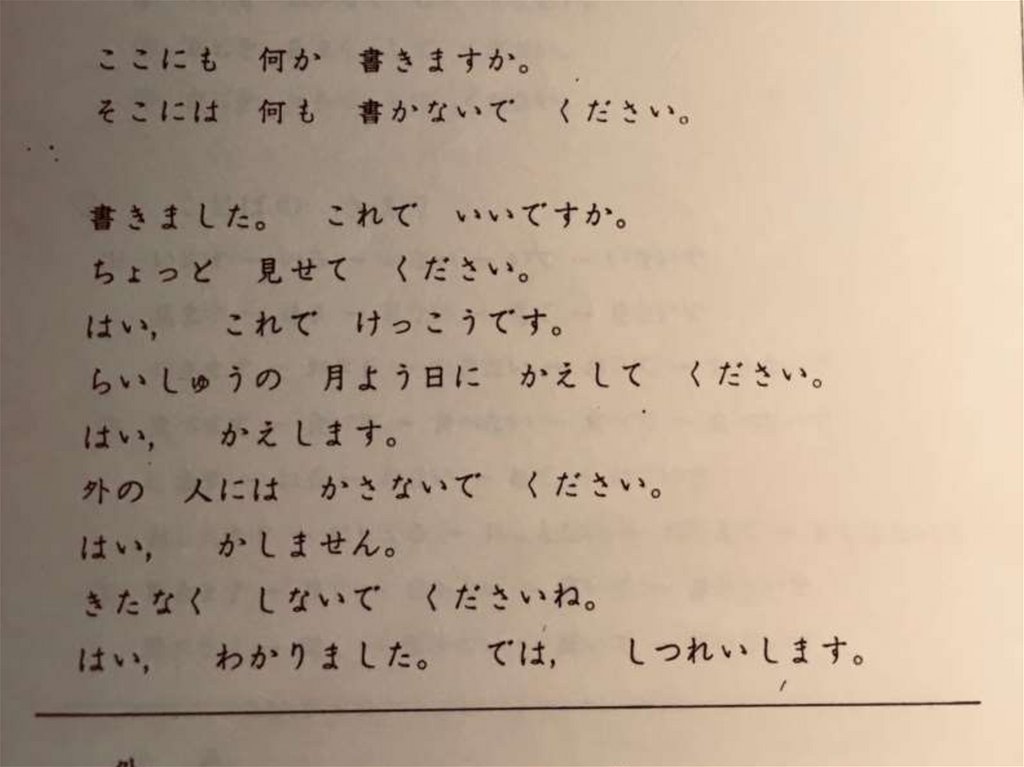 ここにも　何か　書きますか。
そこには　何も　書かないで　ください。
書きました。　これで　いいですか。
ちょっと　見せて　ください。
はい,　これで　けっこうです。
らいしゅうの　月よう日に　かえして　ください。
はい,　かえします。
外の　人には　かさないで　ください。
はい,　かしません。
きたなく　しないで　くださいね。
はい,　わかりました。　では,　しつれいします。